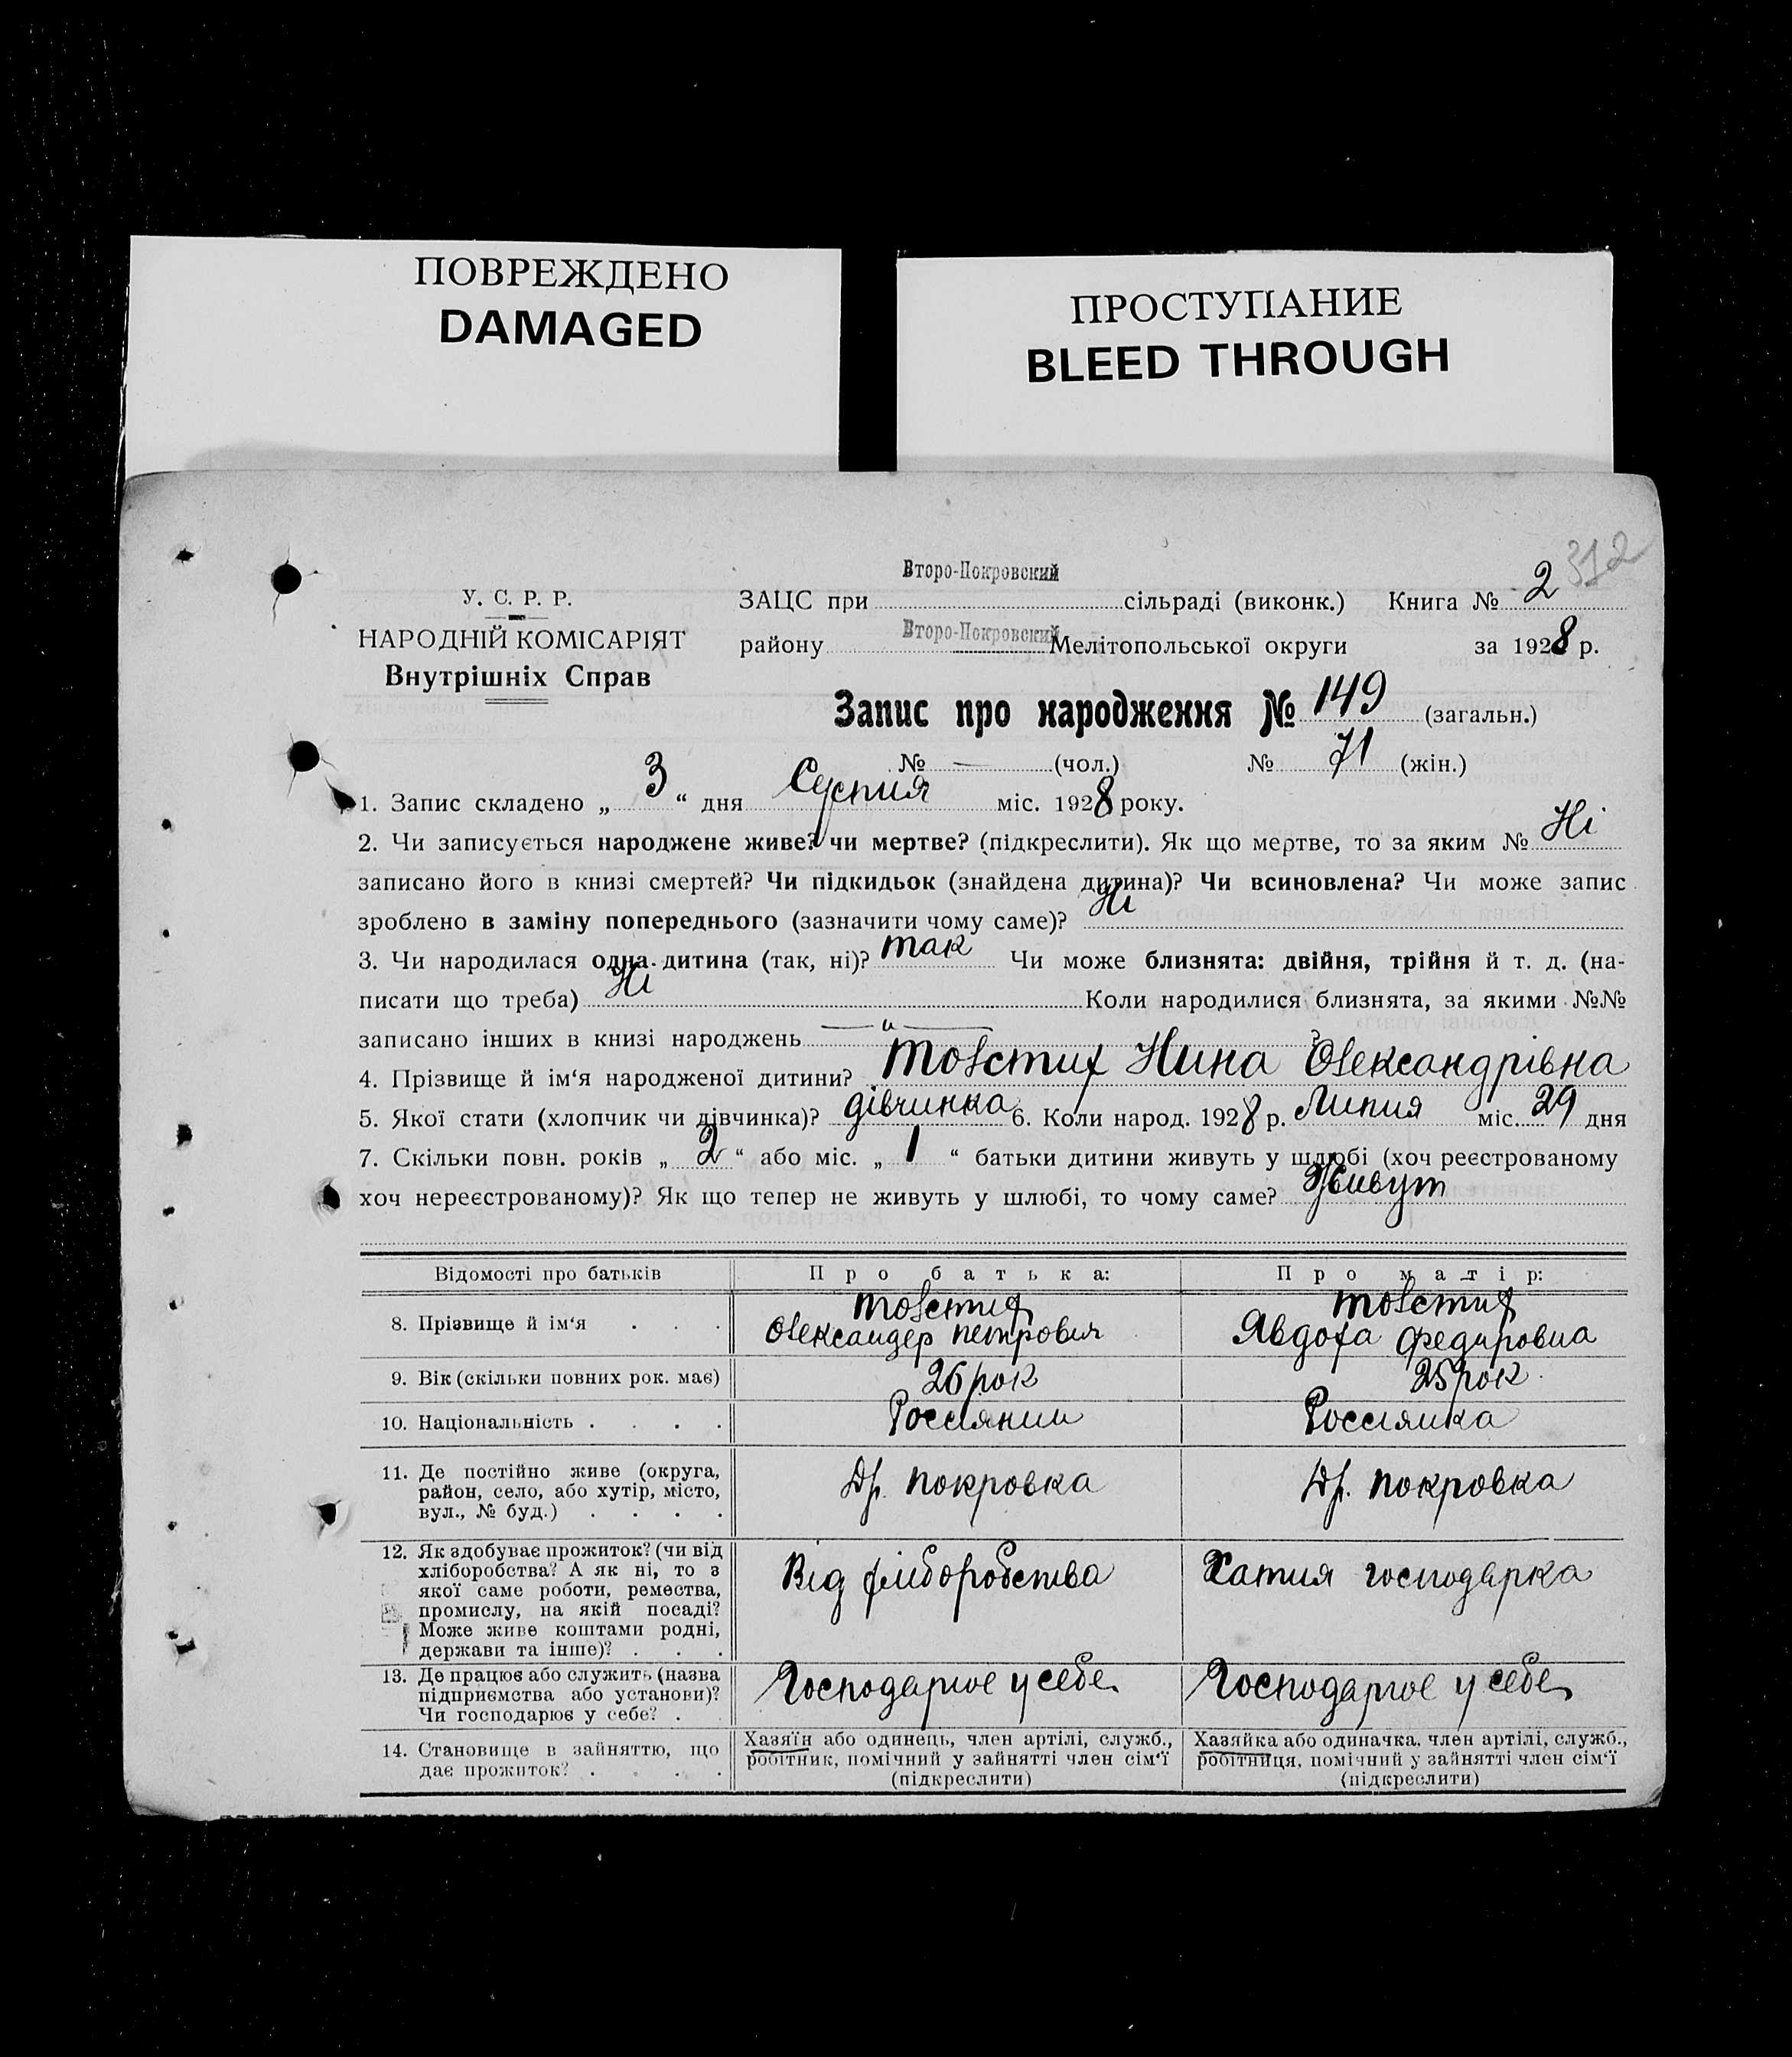 ПОВРЕЖДЕНО
DAMAGED
ПРОСТУПАНИЕ
BLEED THROUGH
312
У. С. Р. Р.
НАРОДНІЙ КОМІСАРІЯТ
Внутрішніх Справ
Второ-Покровский
ЗАЦС при сільраді (виконк.) Книга № 2
Второ-Покровский
району Мелітопольської округи за 1928 р.
Запис про народження № 149 (загальн.)
№ — (чол.) № 71 (жін.)
1. Запис складено „ 3 “ дня Серпня міс. 1928 року.
2. Чи записується народжене живе? чи мертве? (підкреслити). Як що мертве, то за яким № Ні
записано його в книзі смертей? Чи підкидьок (знайдена дитина)? Чи всиновлена? Чи може запис
зроблено в заміну попереднього (зазначити чому саме)? Ні
3. Чи народилася одна дитина (так, ні)? так Чи може близнята: двійня, трійня й т. д. (на-
писати що треба) Ні Коли народилися близнята, за якими №№
записано інших в книзі народжень — „ — ?
4. Прізвище й ім‘я народженої дитини? Товстих Нина Олександрівна
5. Якої стати (хлопчик чи дівчинка)? дівчинка 6. Коли народ. 1928 р. Липня міс. 29 дня
7. Скільки повн. років „ 2 “ або міс. „ 1 “ батьки дитини живуть у шлюбі (хоч реєстрованому
хоч нереєстрованому)? Як що тепер не живуть у шлюбі, то чому саме? Живут
Відомості про батьків Про батька: Про матір:
8. Прізвище й ім‘я . . . Товстих Олександер Петрович Товстих Явдоха Федировна
9. Вік (скільки повних рок. має) 26 рок 25 рок.
10. Національність . . . . Россіянин Россіянка
11. Де постійно живе (округа,
район, село, або хутір, місто,
вул., № буд.) . . . .
Др. Покровка Др. Покровка
12. Як здобуває прожиток? (чи від
хліборобства? А як ні, то з
якої саме роботи, ремества,
промислу, на якій посаді?
Може живе коштами родні,
держави та інше)? . . .
Від хліборобства Хатня господарка
13. Де працює або служить (назва
підприємства або установи)?
Чи господарює у себе? .
Господарює у себе Господарює у себе
14. Становище в зайняттю, що
дає прожиток? . . . .
Хазяїн або одинець, член артілі, служб.,
робітник, помічний у зайнятті член сім‘ї
(підкреслити)
Хазяйка або одиначка, член артілі, служб.,
робітниця, помічний у зайнятті член сім‘ї
(підкреслити)